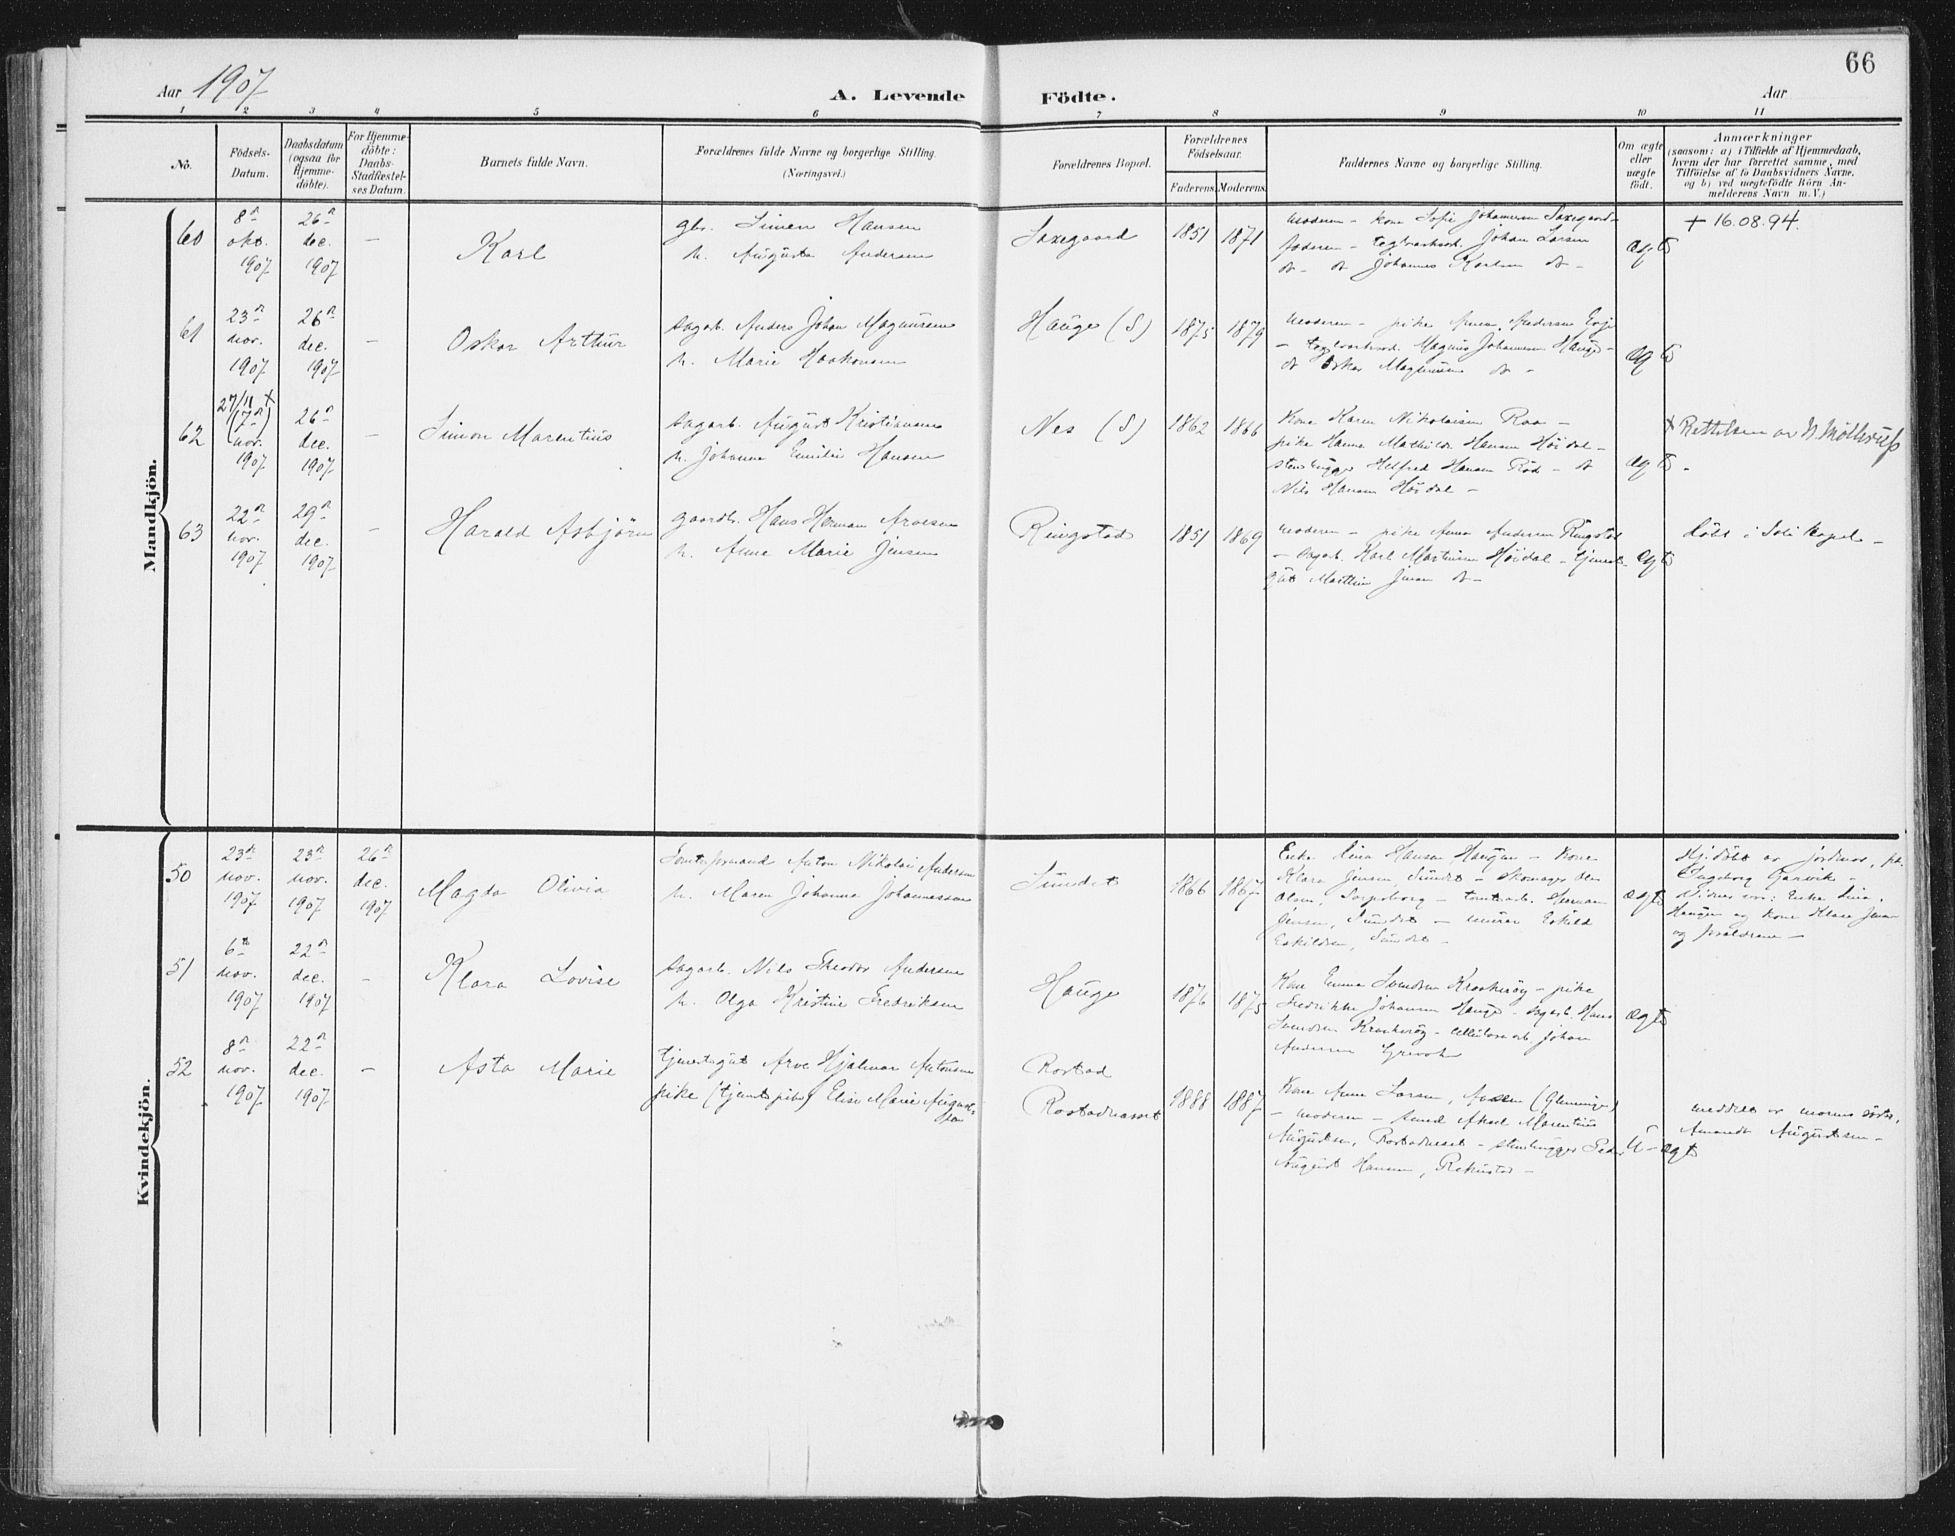 66
Aar 1907
A. Levende Födte.
Aar
1 2 3 4 5 6 7 8 9 10 11
No.
Födsels-Datum.
Daabsdatum (ogsaa for Hjemme-döbte).
For Hjemme-döbte: Daabs-Stadfæstel-ses Datum.
Barnets fulde Navn.
Forældrenes fulde Navne og borgerlige Stilling.
(Næringsvei.)
Forældrenes Bopæl.
Forældrenes Födselsaar.
Faderens. Moderens.
Faddernes Navne og borgerlige Stilling.
Om ægte eller uægte födt.
Anmærkninger
(saasom: a) i Tilfælde af Hjemmedaab,
hvem der har forrettet samme, med
Tilföielse af to Daabsvidners Navne,
og b) ved uægtefödte Börn An-
melderens Navn m. V.)
Mandkjön.
60
8de okt. 1907
26de dec. 1907
-
Karl
gbr. Simen Hansen
h. Augusta Andersen
Saxegaard
1851 1871
Moderen - kone Sofie Johannesen Saxegaard-
faderen - teglverksarb. Johan Larsen
do - do Johannes Karlsen do -
ægte
+ 16.08.94.
61
23de nov. 1907
26de dec. 1907
-
Oskar Arthur
sagarb. Anders Johan Magnusen
h. Marie Haakonsen
Hauge (S)
1875 1879
Moderen - pike Anna Andersen
- teglverksarb. Magnus Johannesen Hauge -
do Oskar Magnusen do -
ægte
62
27/11 +
(7de) nov. 1907
26de dec. 1907
-
Simon Marentius
sagarb. August Kristiansen
h. Johanne Emilie Hansen
Nes (S)
1862 1866
Kone Karen Nikolaisen Roa -
pike Hanna Mathilde Hansen Höidal -
stenhugger Helfred Hansen Röd - do
Nils Hansen Höidal -
ægte
+ Rettelsen av N Möllerup
63
22de nov. 1907
29de dec. 1907
-
Harald Asbjörn
gaardbr. Hans Herman Arvesen
h. Anne Marie Jensen
Ringstad
1851 1869
Moderen - pike Anna Andersen Ringstad
- sagarb. Karl Martinsen Höidal - tjeneste-
gut Matthis Jensen do -
ægte
Döbt i Soli kapel -
Kvindekjön.
50
23de nov. 1907
23de nov. 1907
26de dec. 1907
Magda Olivia
Tomteformand Anton Nikolai Andersen
h. Maren Johanne Johannessen
Sundet
1866 1867
Enke Lina Hansen Haugen - kone
Klara Jensen, Sundet - skomager Ole
Olsen, Sarpsborg - tomtearb. Herman
Jensen, Sundet - murer Eskild
Eskildsen, Sundet -
ægte
Hj.döbt av jordmor, frk.
Ingeborg -
Vidner var: Enke Lina
Haugen og kone Klara Jensen
og forældrene -
51
6te nov. 1907
22de dec. 1907
-
Klara Lovise
sagarb. Nils Theodor Andersen
h. Olga Kristine Fredriksen
Hauge
1876 1875
Kone Emma Svendsen Kraakeröy - pike
Fredrikke Johansen Hauge - sagarb. Hans
Svendsen Kraakeröy - cellulosearb. Johan
Andersen
ægte
52
8de nov. 1907
22de dec. 1907
-
Asta Marie
tjenestegut Arve Hjalmar Antonsen
pike (tjenestepike) Elise Marie August-
sen
Rostad
Rostadnesset
1888 1887
Kone Anne Larsen, (Glemminge)
- moderen - Axel Marentius
Augustsen, Rostadneset - stenhugger Peder
August Hansen, Rekustad -
U-ægte
meddelt av morens söster,
Amanda Augustsen -